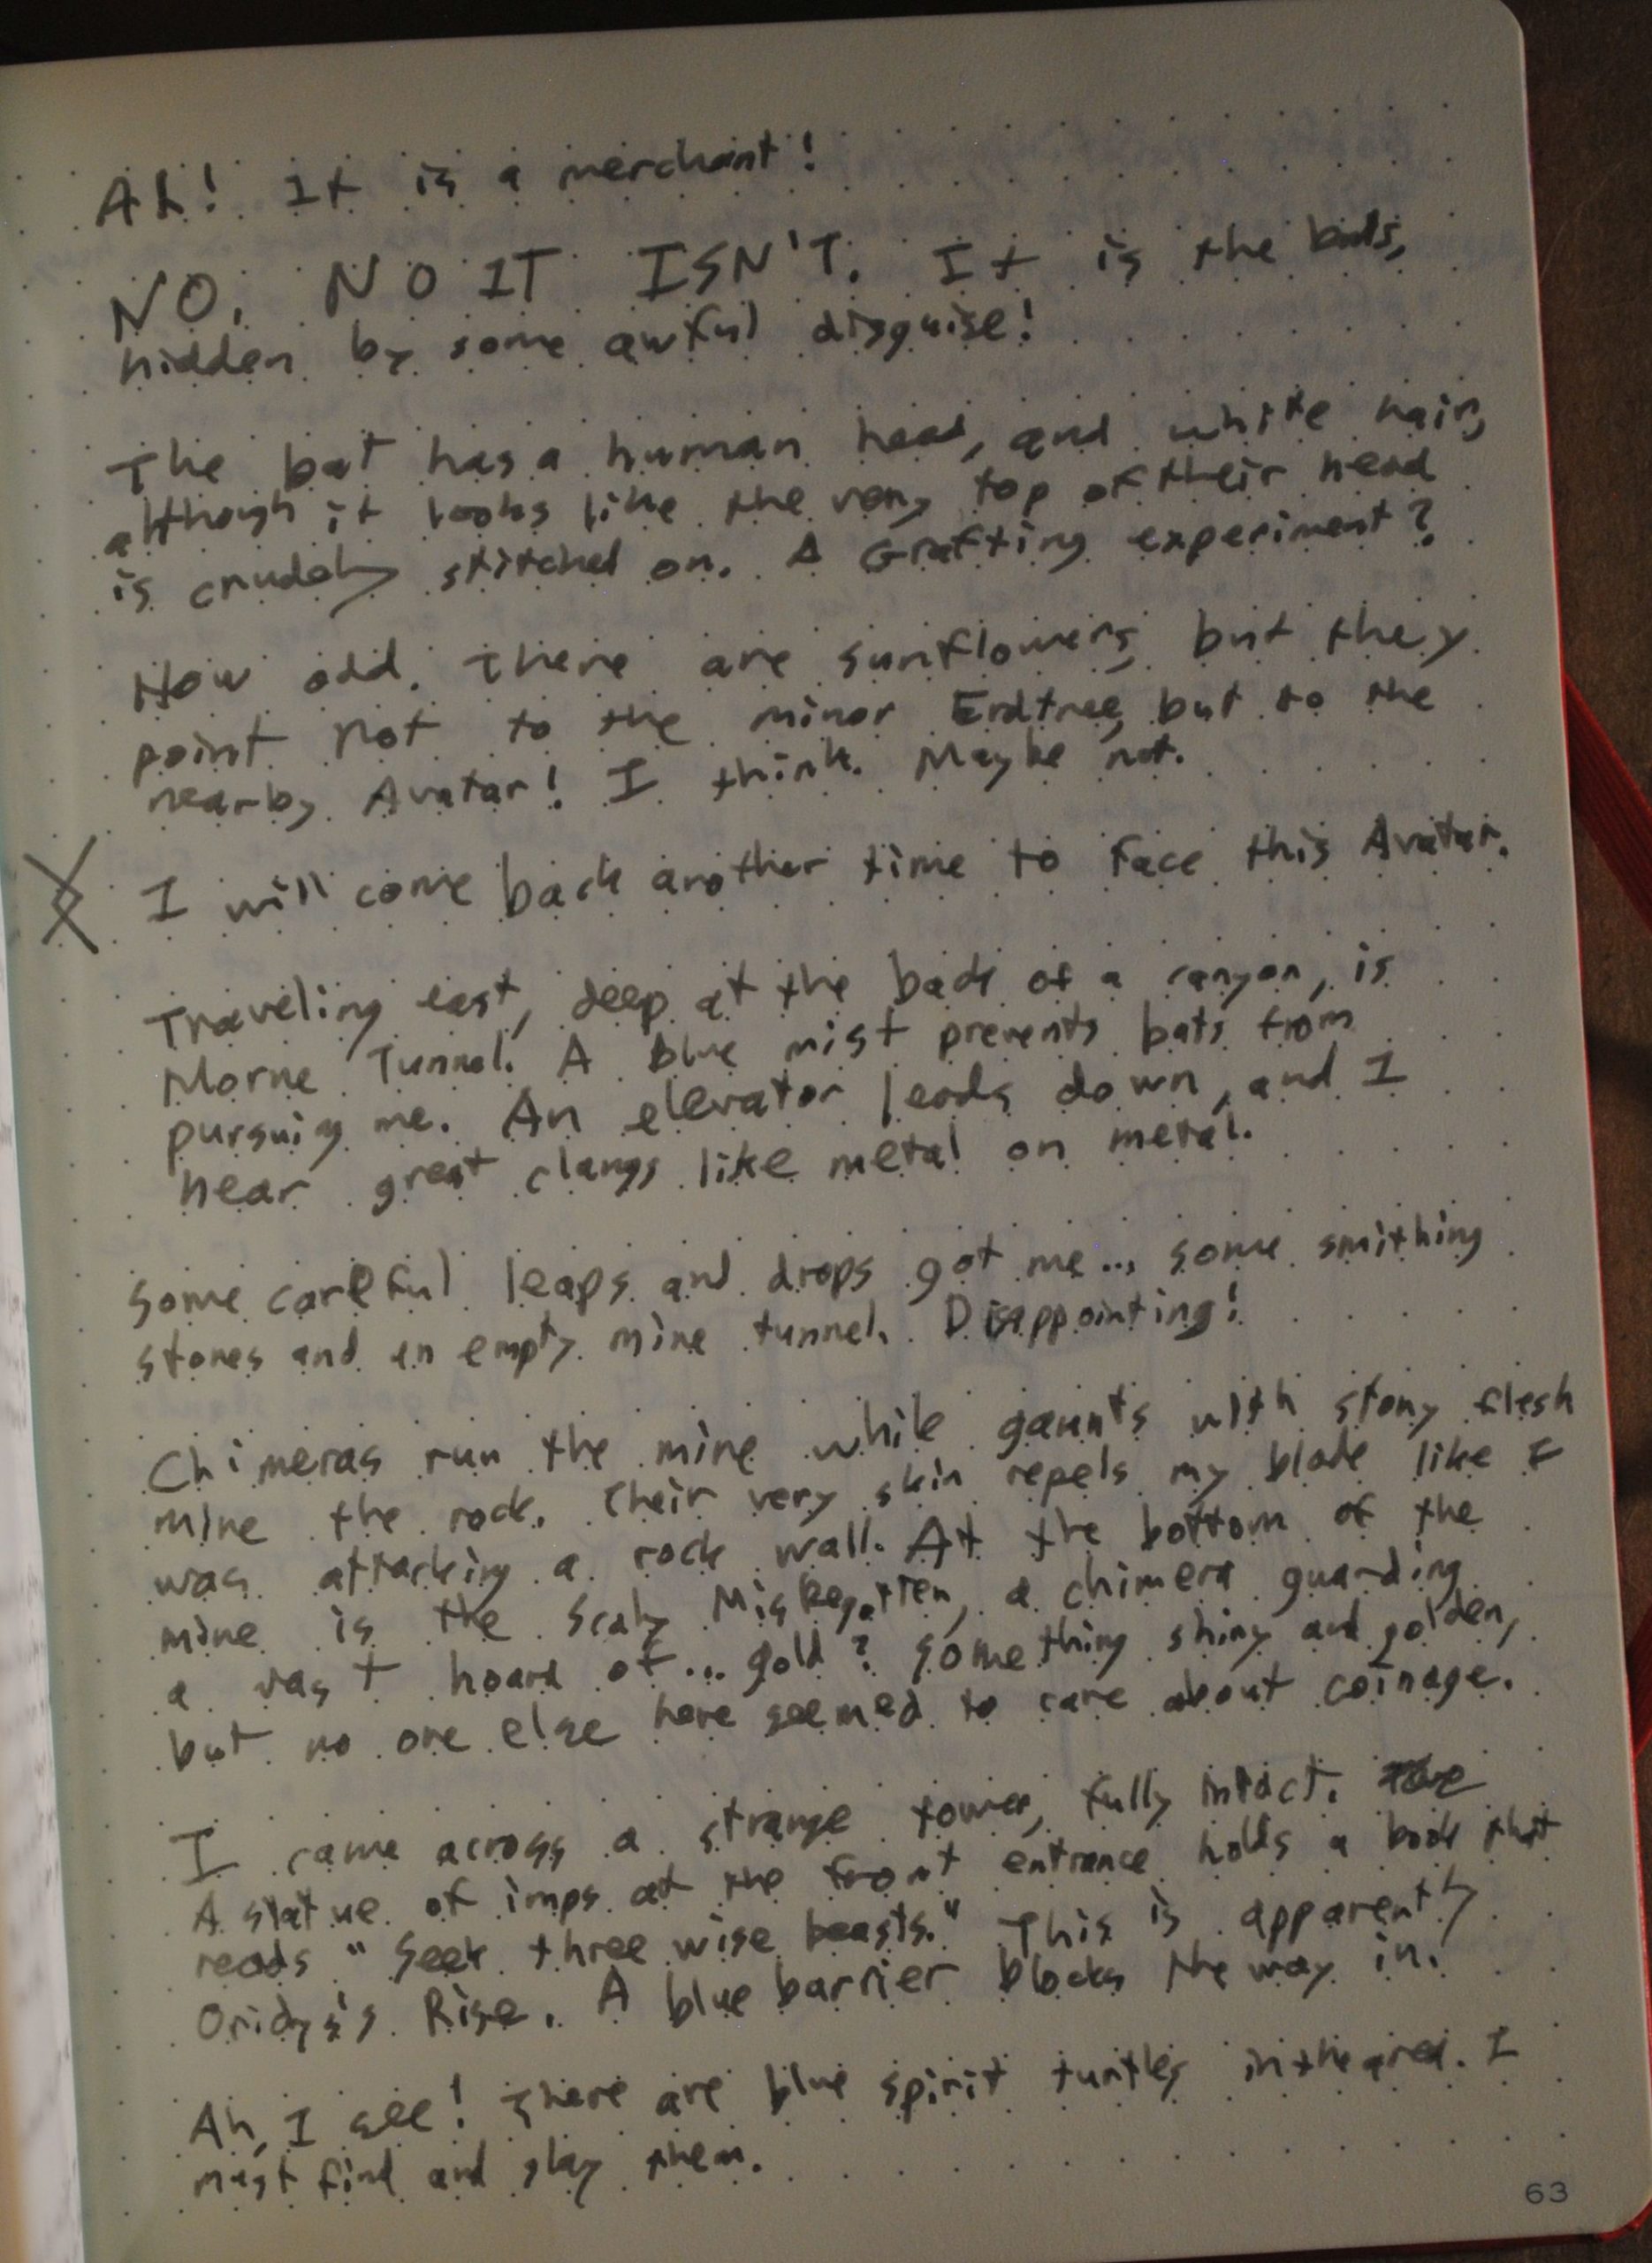 Ah! It is a merchant!
NO. NO IT ISN'T. It is the bats,
hidden by some awful disguise!
The bat has a human head, and white hair,
although it looks like the very top of their head
is crudely stitched on. A Grafting experiment?
How odd. There are sunflowers, but they
point not to the minor Erdtree, but to the
nearby Avatar! I think. Maybe not.
I will come back another time to face this Avatar.
Traveling east, deep at the back of a canyon, is
Morne Tunnel. A blue mist prevents bats from
pursuing me. An elevator leads down, and I
hear great clangs like metal on metal.
Some careful leaps and drops got me... some smithing
stones and an empty mine tunnel. Disappointing!
Chimeras run the mine while gaunts with stony flesh
mine the rock. Their very skin repels my blade like I
was attacking a rock wall. At the bottom of the
mine is the Scaly Misbegotten, a chimera guarding
a vast hoard of... gold? Something shiny and golden,
but no one else here seemed to care about coinage.
I came across a strange tower, fully intact.
A statue of imps at the front entrance holds a book that
reads "Seek three wise beasts." This is apparently
Oridys's Rise. A blue barrier blocks the way in.
Ah, I see! There are blue spirit turtles in the area. I
must find and slay them.
63